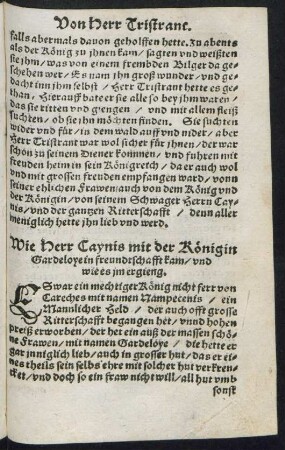 Von Herr Tristrant.
falls abermals dauon geholffen hette. zu abents
als der König zu jhnen kam / sagten vnd weisten
sie jhm / was von einem frembden Bilger da ge-
schehen wer / Es nam jhn groß wunder / vnd ge-
dacht inn jhm selbst / Herr Tristrant hette es ge-
than. Hierauff bate er sie alle so bey jhm waren /
das sie ritten vnd giengen / vnd mit allem fleiß
suchten / ob sie jhn möchten finden. Sie suchten
wider vnd für / in dem wald auff vnd nider / aber
Herr Tristrant war wol sicher für jhnen / der war
schon zu seinem Diener kommen / vnd fuhren mit
freuden heim in sein Königreich / da er auch wol
vnd mit grossen freuden empfangen ward / vonn
seiner ehlichen Frawen / auch von dem König vnd
der Königin / von seinem Schwager Herrn Cay-
nis / vnd der gantzen Ritterschafft / denn aller
meniglich hette jhn lieb vnd werd.
Wie Herr Caynis mit der Königin
Gardeloye in freundtschafft kam / vnd
wie es jm ergieng.
ES war ein mechtiger König nicht fer von
Careches mit namen Nampecenis / ein
Mannlicher Held / der auch offt grosse
Ritterschafft begangen het / vnnd hohen
preiß erworben / der het ein auß der massen schö-
ne Frawen / mit namen Gardeloye / die hette er
gar jnniglich lieb / auch in grosser hut / das er ei-
nes theils sein selbs ehre mit solcher hut verkren-
cket / vnd doch so ein fraw nicht will / all hut vmb
sonst